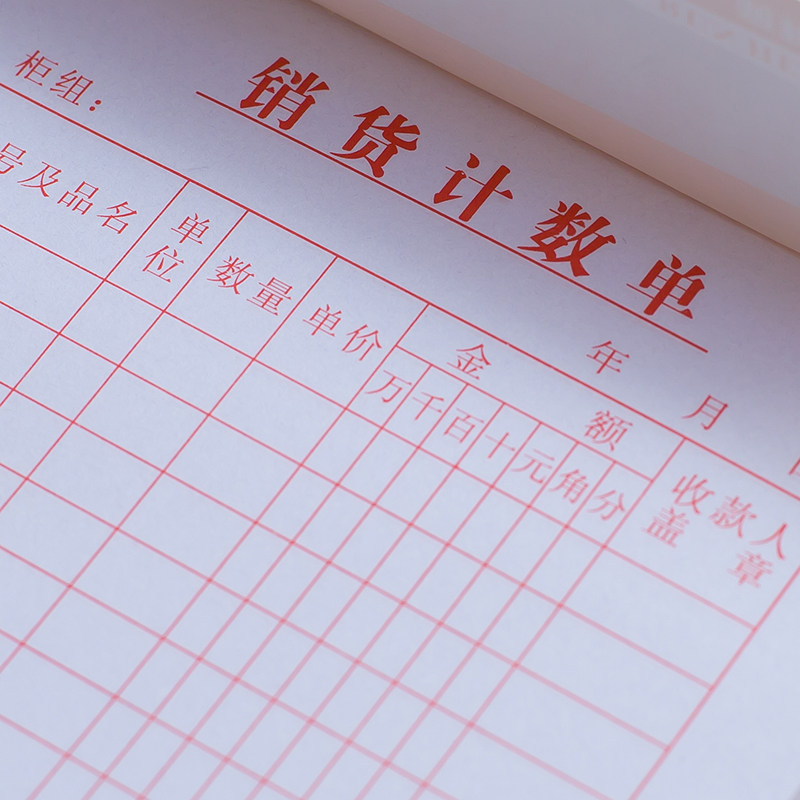 销货计数单
柜组： 年 月
号及品名 单位 数量 单价 金额 收款人盖章
万 千 百 十 元 角 分